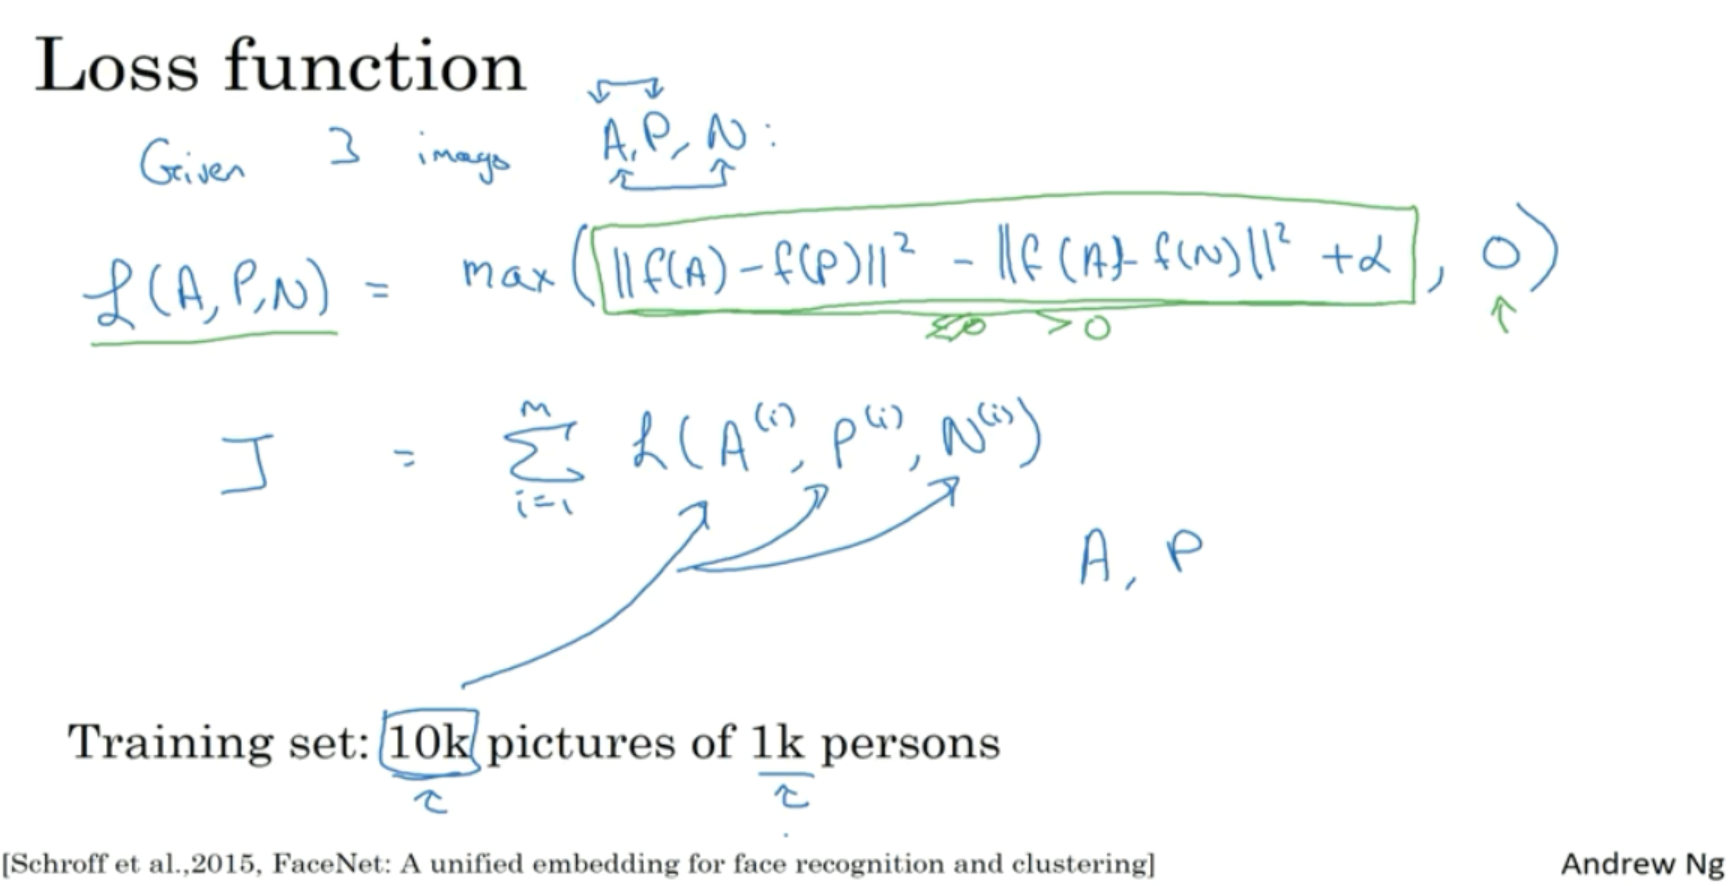 Loss function
Given 3 images A, P, N:
ℒ(A, P, N) = max(||f(A) - f(P)||² - ||f(A) - f(N)||² + α, 0)
≤0 >0
J = Σ_{i=1}^{m} ℒ(A⁽ⁱ⁾, P⁽ⁱ⁾, N⁽ⁱ⁾)
A, P
Training set: 10k pictures of 1k persons
[Schroff et al.,2015, FaceNet: A unified embedding for face recognition and clustering]
Andrew Ng